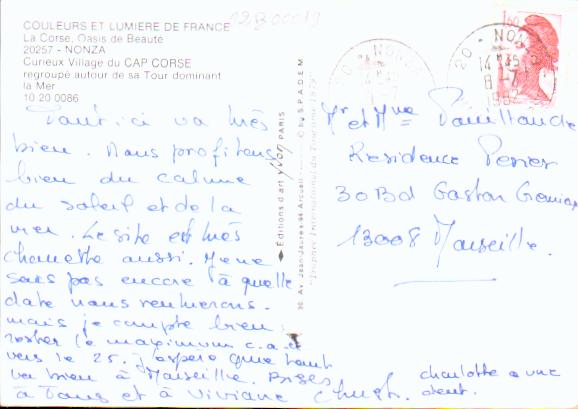 02B00013
COULEURS ET LUMIERE DE FRANCE
La Corse, Oasis de Beauté
20257 - NONZA
Curieux Village du CAP CORSE
regroupé autour de sa Tour dominant
la Mer
10 20 0086
Tout ici va très
bien. Nous profitons
bien du calme
du soleil et de la
mer. Le site est très
chouette aussi. Je ne
sais pas encore à quelle
date nous rentrerons.
mais je compte bien
rester le maximum c.a.d
vers le 25. J'espère que tout
va bien à Marseille. Bises
à Tous et à Viviane
charlotte a une
dent.
Editions d'art yvon PARIS
© by S.P.A.D.E.M.
30, Av. Jean-Jaurès-94 Arcueil
1,60
20 - NONZA
14 H 45
8 - 7
1982
Mr et Mme
Résidence Perier
30 Bd Gaston
13008 Marseille.